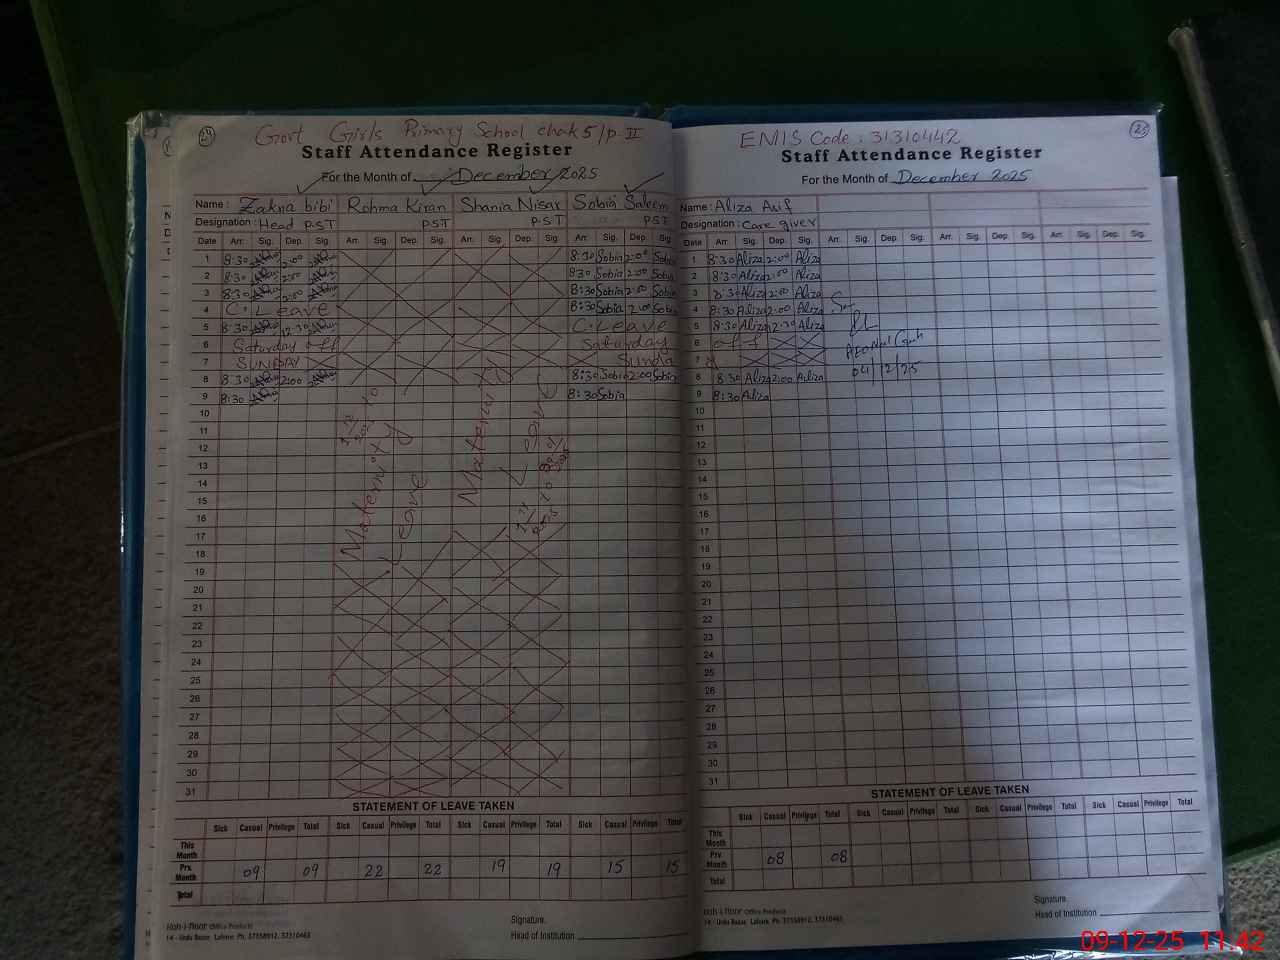 24
Govt Girls Primary School chak 5/p-II
Staff Attendance Register
For the Month of December 2025
Name: Zakna bibi Rohma Kiran Shania Nisar Sobia Saleem
Designation: Head P.S.T P.S.T P.S.T P.S.T
Date Arr. Sig. Dep. Sig. Arr. Sig. Dep. Sig. Arr. Sig. Dep. Sig. Arr. Sig. Dep. Sig.
1 8:30 2:00 8:30 Sobia 2:00 Sobia
2 8:30 2:00 8:30 Sobia 2:00 Sobia
3 8:30 2:00 8:30 Sobia 2:00 Sobia
4 C. Leave 8:30 Sobia 2:00 Sobia
5 8:30 12:30 C. Leave
6 Saturday off Saturday
7 SUNDAY Sunda
8 8:30 2:00 8:30 Sobia 2:00 Sobia
9 8:30 8:30 Sobia
10
11
12
13
14
15
16
17
18
19
20
21
22
23
24
25
26
27
28
29
30
31
Maternity Leave
Maternity Leave
STATEMENT OF LEAVE TAKEN
Sick Casual Privilege Total Sick Casual Privilege Total Sick Casual Privilege Total Sick Casual Privilege Total
This Month
Prv. Month 09 09 22 22 19 19 15 15
Total
Koh-i-Noor Office Products
14 - Urdu Bazar, Lahore. Ph: 37358912, 37310463
Signature.
Head of Institution
25
EMIS Code: 31310442
Staff Attendance Register
For the Month of December 2025
Name: Aliza Asif
Designation: Care giver
Date Arr. Sig. Dep. Sig. Arr. Sig. Dep. Sig. Arr. Sig. Dep. Sig. Arr. Sig. Dep. Sig.
1 8:30 Aliza 2:00 Aliza
2 8:30 Aliza 2:00 Aliza
3 8:30 Aliza 2:00 Aliza
4 8:30 Aliza 2:00 Aliza
5 8:30 Aliza 12:30 Aliza
6 off
7
8 8:30 Aliza 2:00 Aliza
9 8:30 Aliza
10
11
12
13
14
15
16
17
18
19
20
21
22
23
24
25
26
27
28
29
30
31
04/12/25
STATEMENT OF LEAVE TAKEN
Sick Casual Privilege Total Sick Casual Privilege Total Sick Casual Privilege Total Sick Casual Privilege Total
This Month
Prv. Month 08 08
Total
Koh-i-Noor Office Products
14 - Urdu Bazar, Lahore. Ph: 37358912, 37310463
Signature.
Head of Institution
09-12-25 11:42